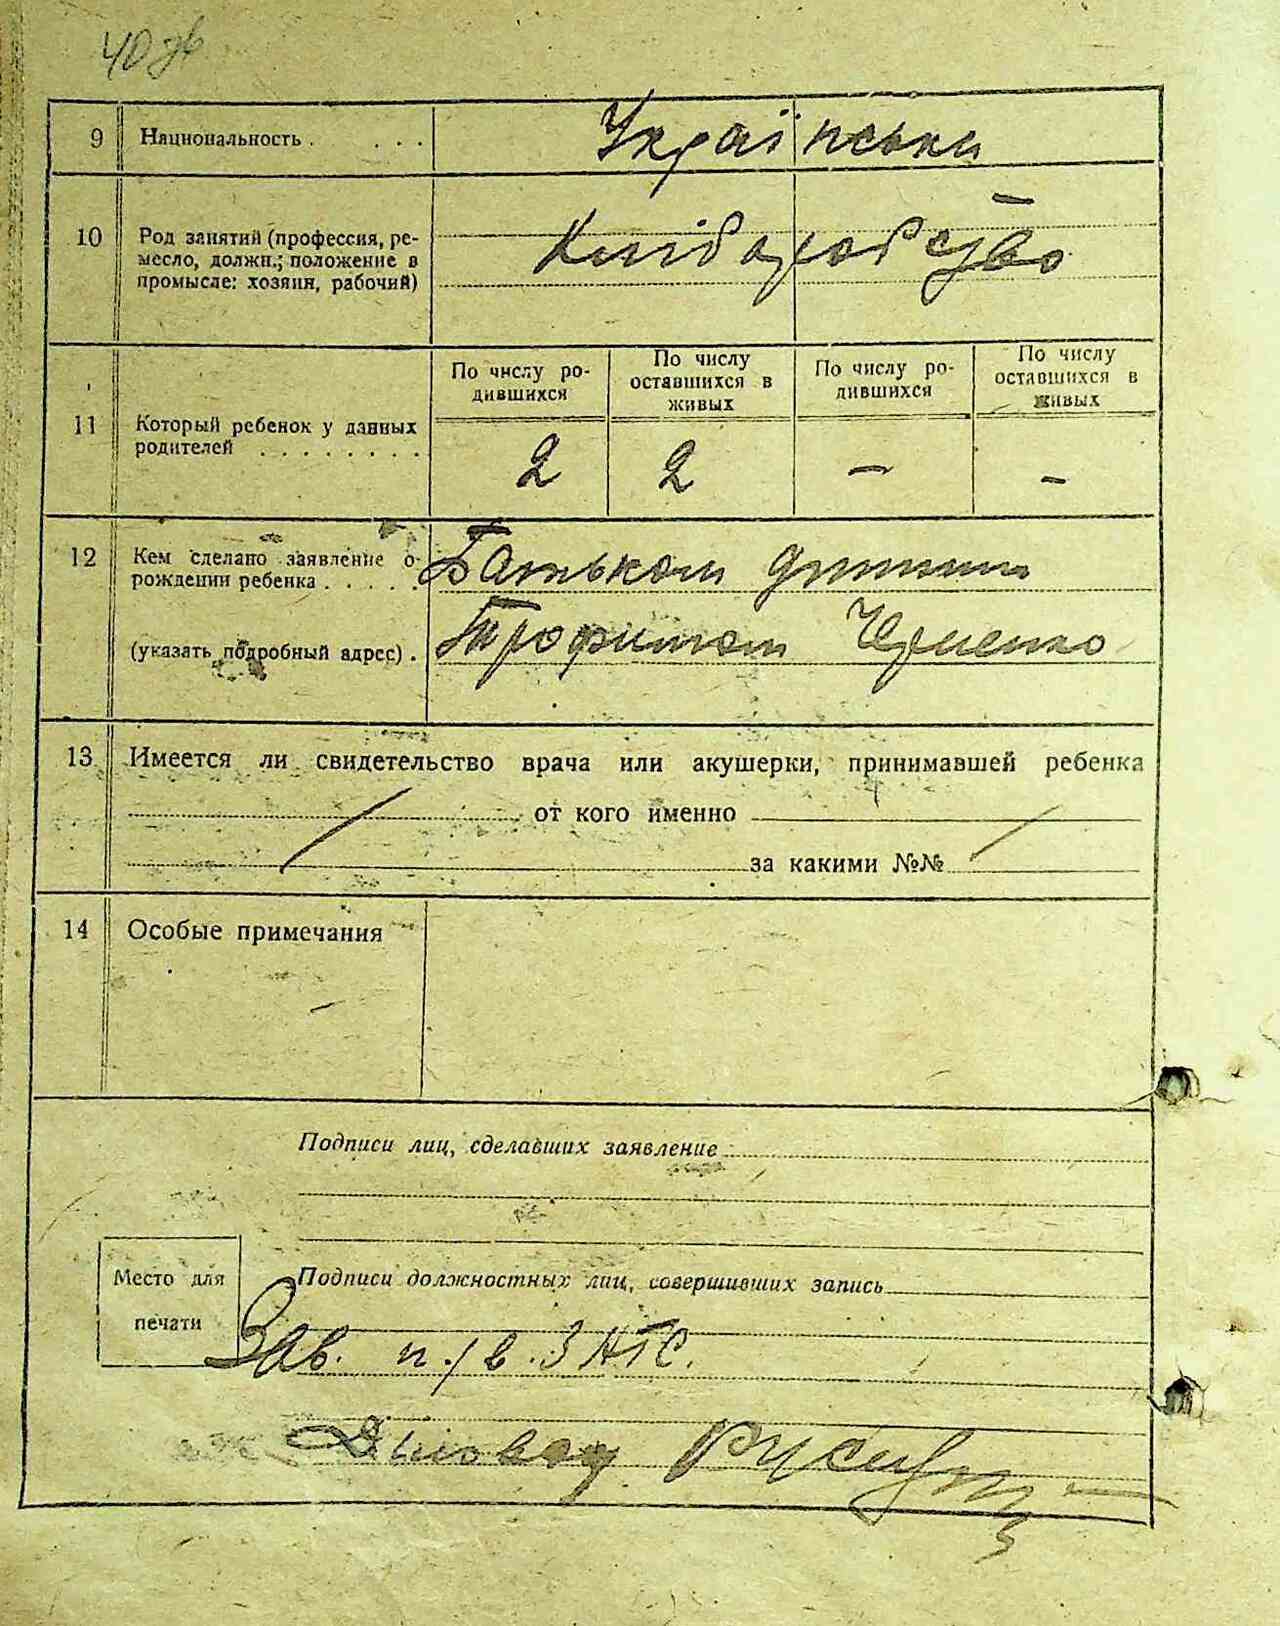 40 зв
9 Национальность . . . . Українська
10 Род занятий (профессия, ре-
месло, должн.; положение в
промысле: хозяин, рабочий)
Хлібаробство
По числу ро-
дившихся
По числу
оставшихся в
живых
По числу ро-
дившихся
По числу
оставшихся в
живых
11 Который ребенок у данных
родителей . . . . . . . .
2 2 – –
12 Кем сделано заявление о
рождении ребенка . . . . .
Батьком дитини
(указать подробный адрес) .
Трофимом
13 Имеется ли свидетельство врача или акушерки, принимавшей ребенка
от кого именно
за какими №№
14 Особые примечания
Подписи лиц, сделавших заявление
Место для
печати
Подписи должностных лиц, совершивших запись
Зав. п./в. ЗАГС.
Діловод